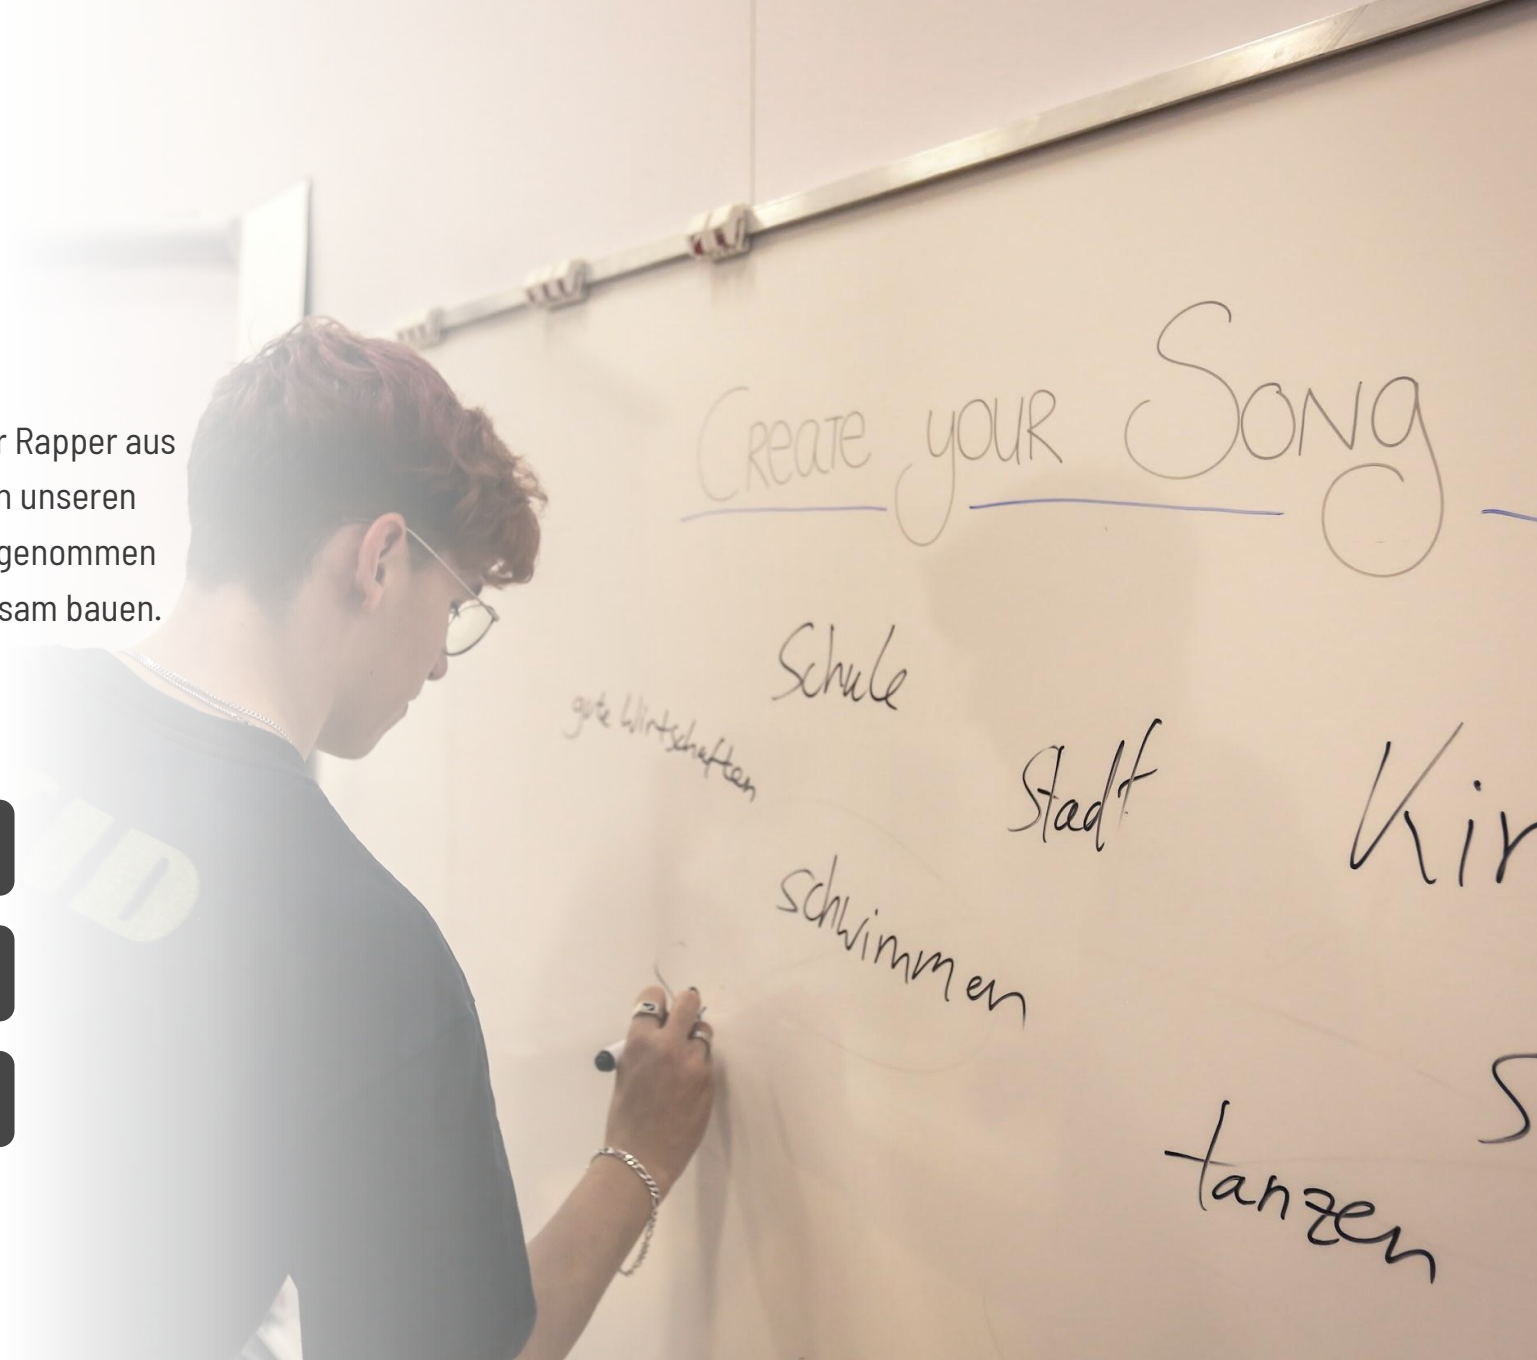 r Rapper aus
n unseren
genommen
sam bauen.
Create your Song
Schule
gute Wirtschaften
Stadt
Kir
schwimmen
S
tanzen